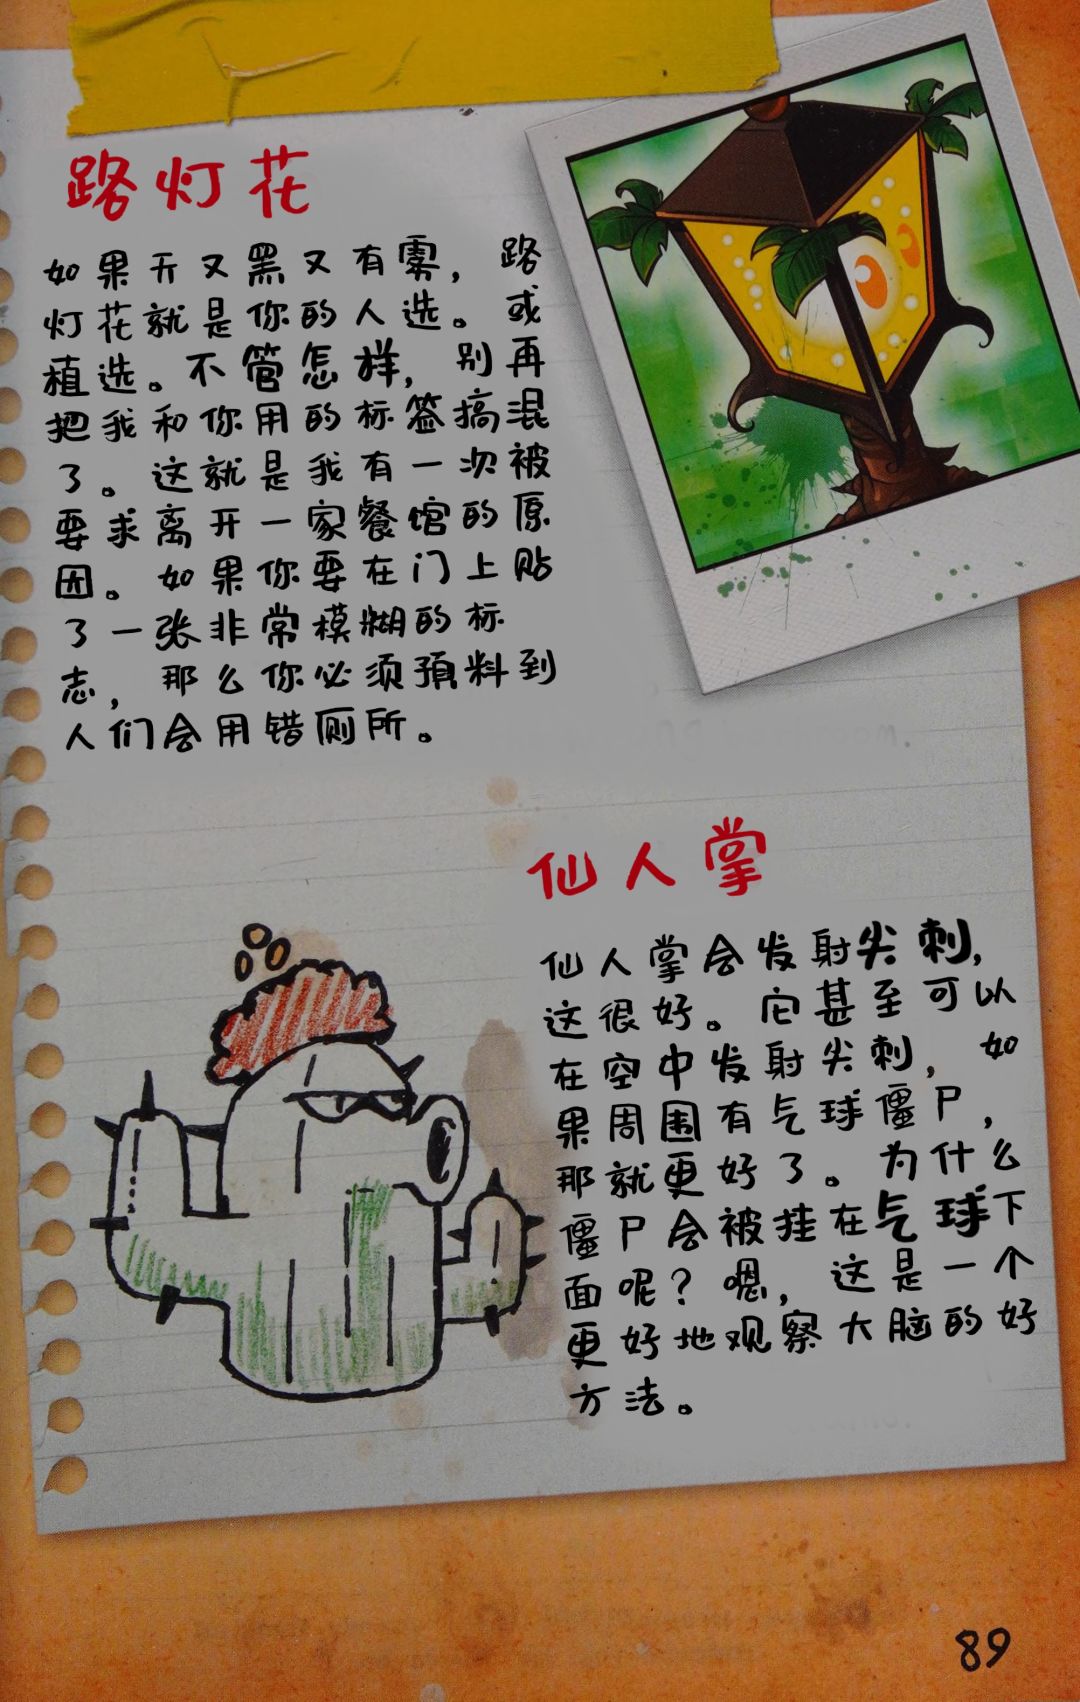 路灯花
如果天又黑又有雾，路
灯花就是你的人选。或
植选。不管怎样，别再
把我和你用的标签搞混
了。这就是我有一次被
要求离开一家餐馆的原
因。如果你要在门上贴
了一张非常模糊的标
志，那么你必须预料到
人们会用错厕所。
仙人掌
仙人掌会发射尖刺，
这很好。它甚至可以
在空中发射尖刺，如
果周围有气球僵尸，
那就更好了。为什么
僵尸会被挂在气球下
面呢？嗯，这是一个
更好地观察大脑的好
方法。
89